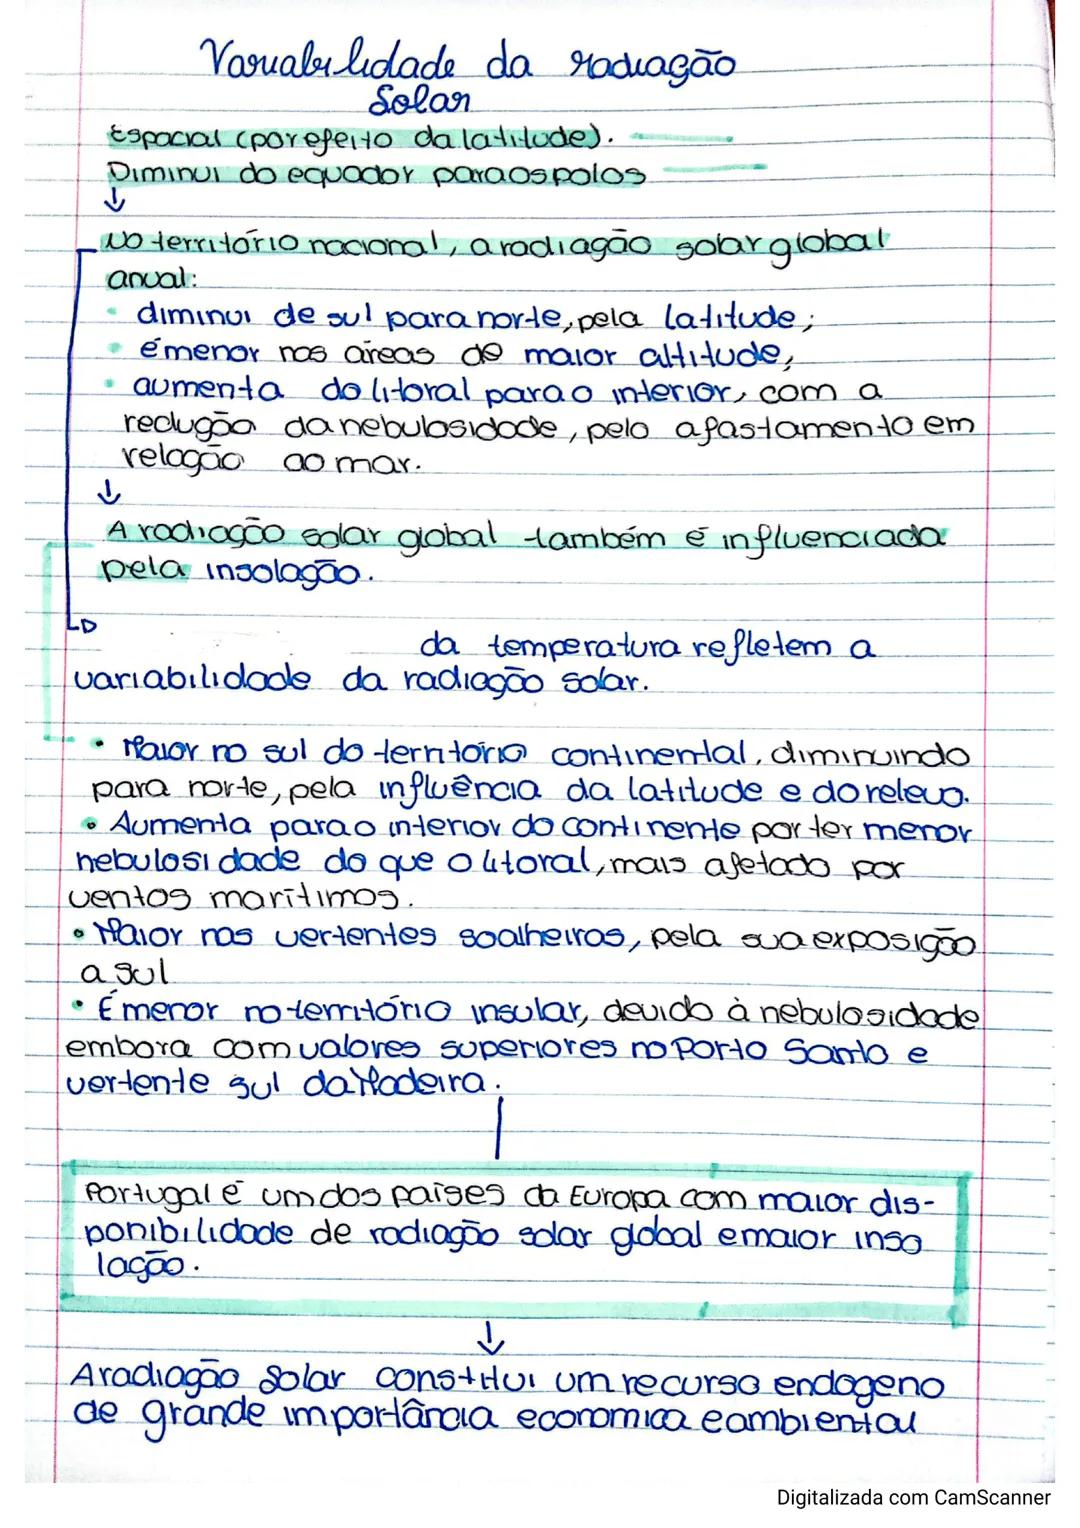 Variabilidade da radiação
Solar
Espacial (por efeito da latitude).
Diminui do equador para os polos
↓
No território nacional, a radiação solar global
anual:
• diminui de sul para norte, pela latitude;
• é menor nas áreas de maior altitude,
• aumenta do litoral para o interior, com a
redução da nebulosidade, pelo afastamento em
relação ao mar.
↓
A radiação solar global também é influenciada
pela insolação.
da temperatura refletem a
variabilidade da radiação solar.
• Maior no sul do território continental, diminuindo
para norte, pela influência da latitude e do relevo.
• Aumenta para o interior do continente por ter menor
nebulosidade do que o litoral, mais afetado por
ventos marítimos.
• Maior nas vertentes soalheiras, pela sua exposição
a sul
• É menor no território insular, devido à nebulosidade
embora com valores superiores no Porto Santo e
vertente sul da Madeira.
Portugal é um dos países da Europa com maior dis-
ponibilidade de radiação solar global e maior inso
lação.
↓
A radiação solar constitui um recurso endogeno
de grande importância economica e ambiental
Digitalizada com CamScanner